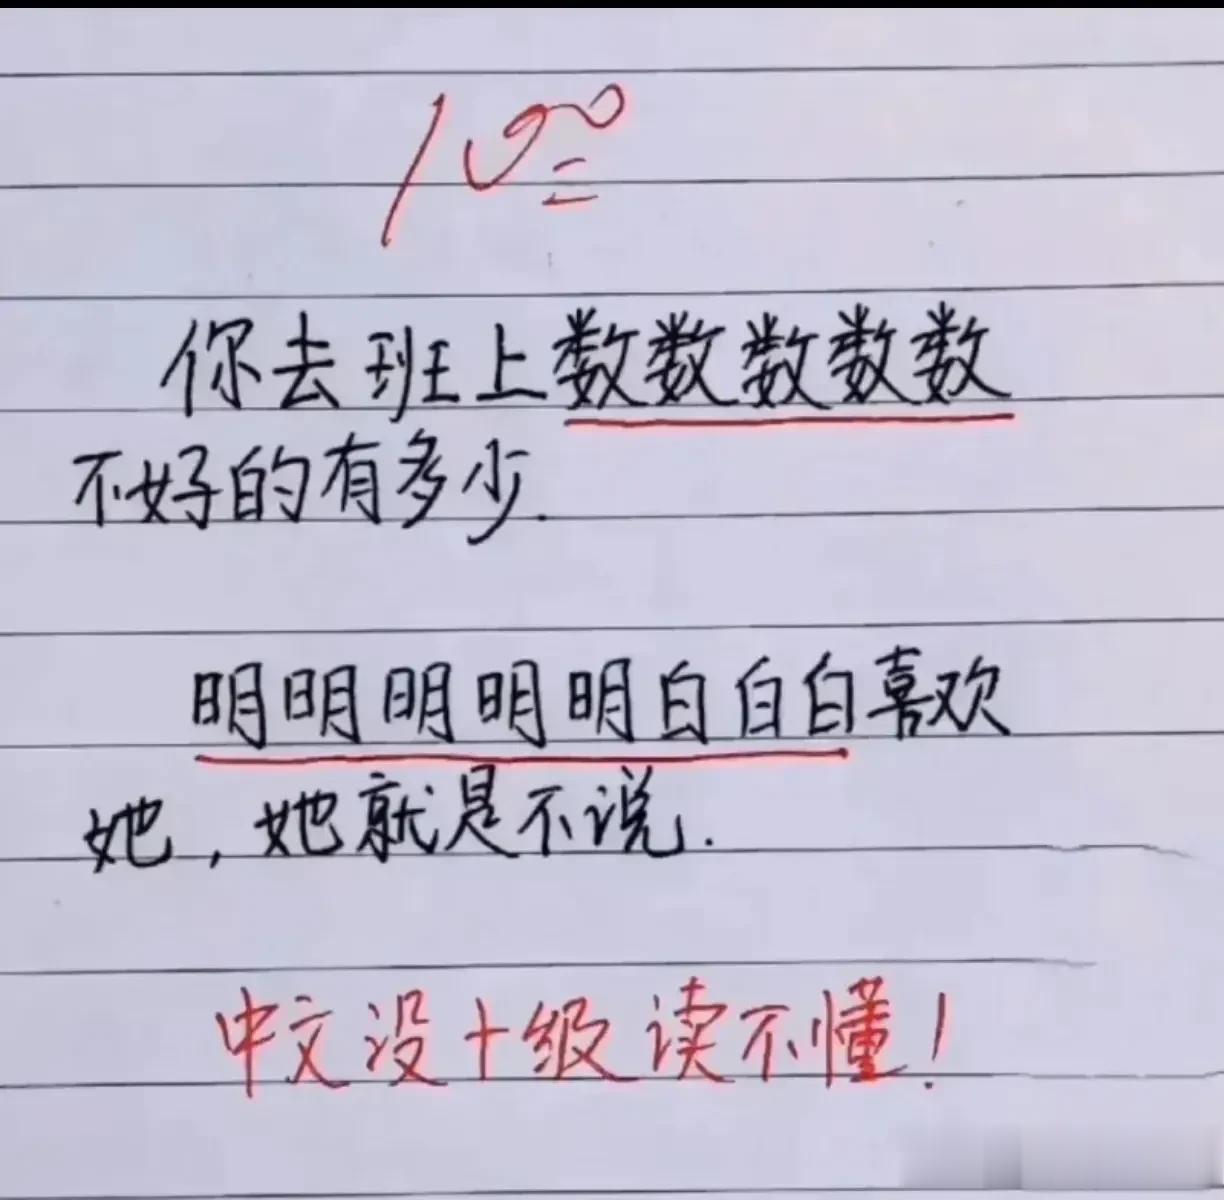 100
你去班上数数数数数
不好的有多少.
明明明明明白白白喜欢
她,她就是不说.
中文没十级读不懂!